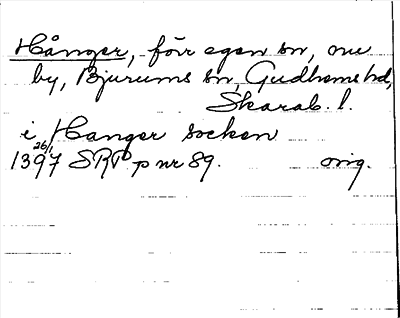 Hånger, förr egen sn, nu
by, Bjurums sn, Gudhems hd,
Skarab. l.
i Hanger socken
1397 26/1 SRP p nr 89. orig.